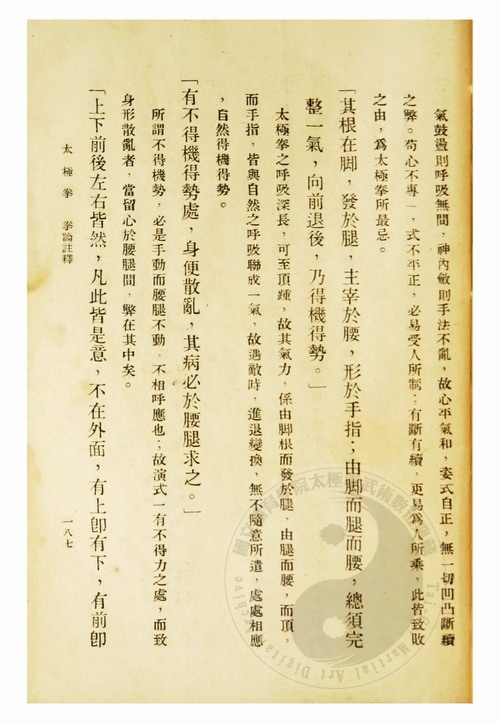 氣鼓盪則呼吸無間，神內斂則手法不亂，故心平氣和，姿式自正，無一切凹凸斷續
之弊。苟心不專一，式不平正，必易受人所制；有斷有續，更易為人所乘，此皆致敗
之由，為太極拳所最忌。
「其根在脚，發於腿，主宰於腰，形於手指；由脚而腿而腰，總須完
整一氣，向前退後，乃得機得勢。」
太極拳之呼吸深長，可至頂踵，故其氣力，係由脚根而發於腿，由腿而腰，而頂，
而手指，皆與自然之呼吸聯成一氣，故遇敵時，進退變換，無不隨意所遣，處處相應
，自然得機得勢。
「有不得機得勢處，身便散亂，其病必於腰腿求之。」
所謂不得機勢，必是手動而腰腿不動，不相呼應也；故演式一有不得力之處，而致
身形散亂者，當留心於腰腿間，弊在其中矣。
「上下前後左右皆然，凡此皆是意，不在外面，有上卽有下，有前卽
太極拳　拳論註釋
一八七